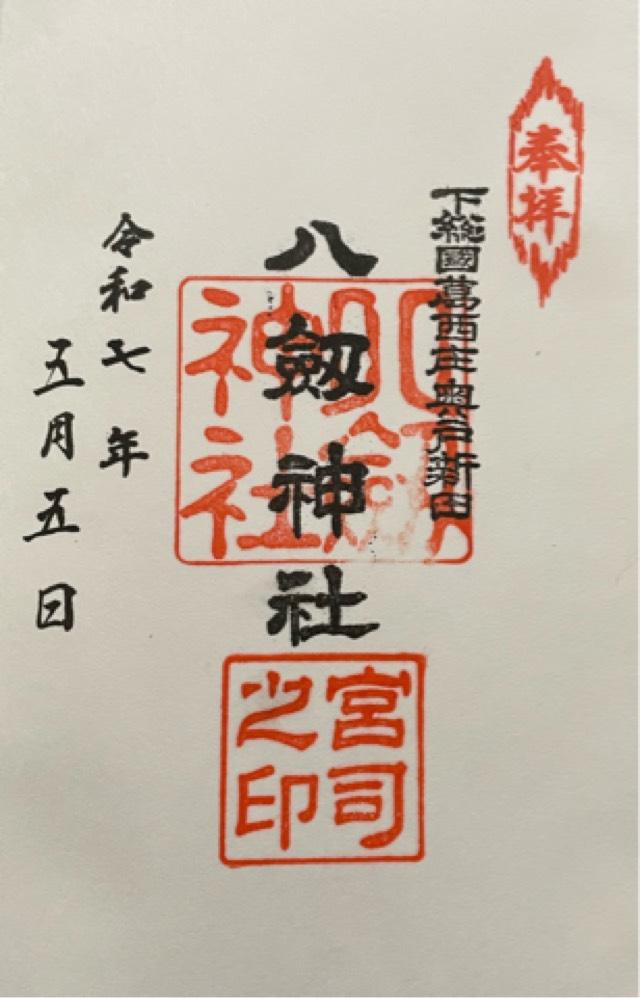 奉拝
下総國葛西庄奥戸新田
八劔神社
八劔神社
宮司之印
令和七年
五月五日